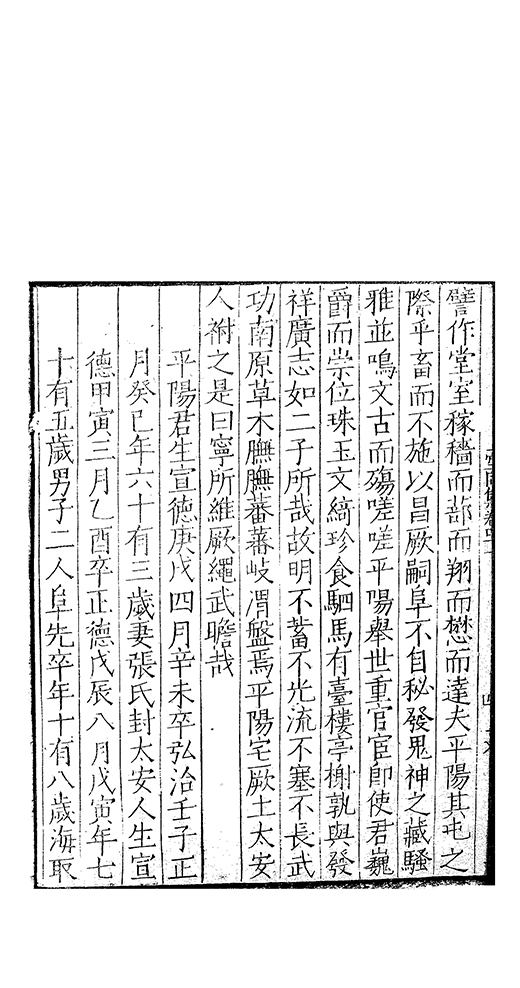 譬作堂室稼穡而蔀而翔而懋而達夫平陽其屯之
際乎畜而不施以昌厥嗣阜不自秘發鬼神之藏騷
雅並鳴文古而殤嗟嗟平陽舉世重官宦卽使君巍
爵而崇位珠玉文縞珍食駟馬有臺樓亭榭孰與發
祥廣志如二子所哉故明不蓄不光流不塞不長武
功南原草木膴膴蕃蕃岐渭盤焉平陽宅厥土太安
人祔之是曰寧所維厥繩武瞻哉
平陽君生宣德庚戌四月辛未卒弘治壬子正
月癸巳年六十有三歲妻張氏封太安人生宣
德甲寅三月乙酉卒正德戊辰八月戊寅年七
十有五歲男子二人阜先卒年十有八歲海取